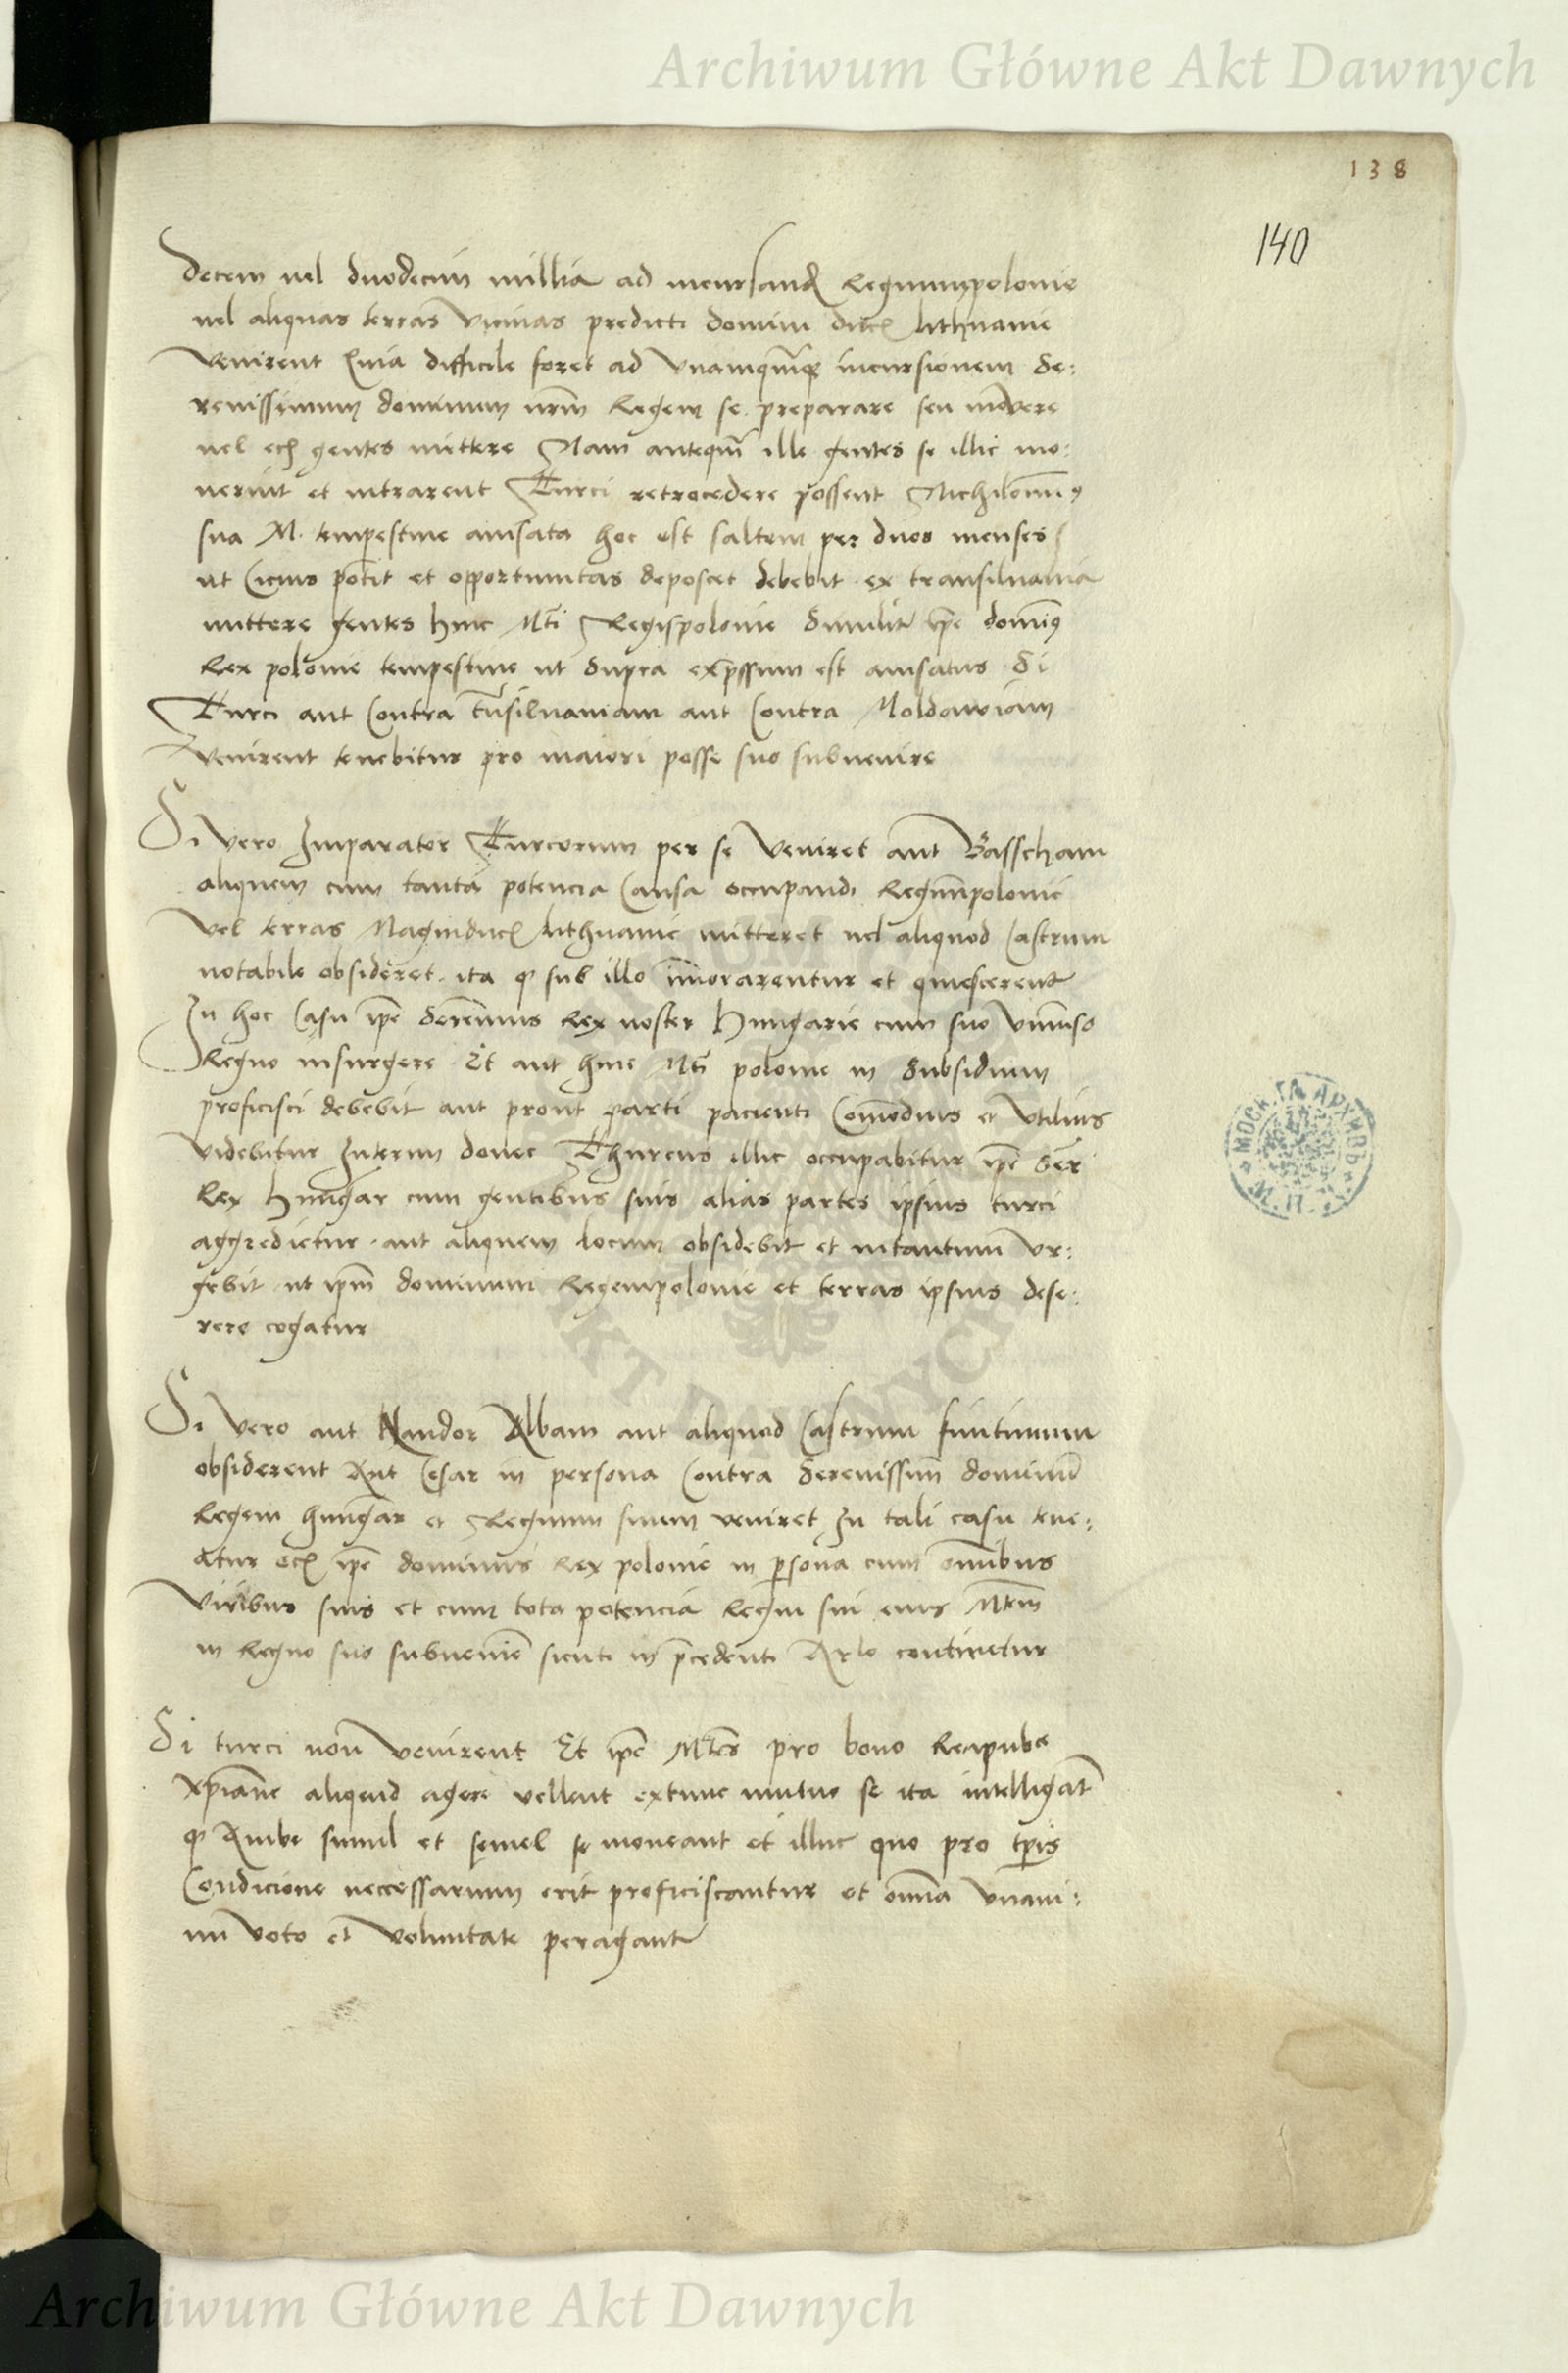 Archiwum Główne Akt Dawnych
138
140
Decem uel duodecim millia ad incursand Regnumpolonie
uel aliquas terras vicinas predicti domini ducis lithuanie
venirent Quia difficile foret ad vnamquamque incursionem Se:
renissimum dominum nrm Regem se preparare seu mouere
uel gentes mittere Nam antequam ille gentes se illic mo:
uerint et intrarent Turci retrocedere possent Nichilominus
sua M. tempestiue auisata hoc est saltem per duos menses
ut Cicius poterit et opportunitas deposcet debebit ex transiluania
mittere gentes huic Mti Regispolonie Similiter ipse dominus
Rex polonie tempestiue ut supra expressum est auisatus Si
Turci aut Contra transiluaniam aut Contra Moldauiam
venirent tenebitur pro maiori posse suo subuenire
Si vero Imparator Turcorum per se veniret aut Basscham
aliquem cum tanta potencia Causa occupandi Regnumpolonie
vel terras Magniducis lithuanie mitteret uel aliquod Castrum
notabile obsideret ita q sub illo immorarentur et quiescerent
In hoc Casu ipse Serenimus Rex noster Hungarie cum suo vniuerso
Regno insurgere Et aut huic Mti polonie in Subsidium
proficisci debebit aut prout parti pacienti Comodius et vtilius
videbitur Interim donec Thurcus illic occupabitur ipse Ser
Rex Hungar cum gentibus suis alias partes ipsius turci
aggredietur aut aliquem locum obsidebit et intantum vr:
gebit ut ipm dominum Regempolonie et terras ipsius dese:
rere cogatur
Si vero aut Nandor Albam aut aliquod Castrum finitimum
obsiderent Aut Cesar in persona Contra Serenissim dominum
Regem hungar et Regnum suum veniret In tali casu tene:
atur ipse dominus Rex polonie in persona cum omnibus
viribus suis et cum tota potencia Regni sui eius Mtem
in Regno suo subuenire sicuti in precedenti Arlo continetur
Si turci non venirent Et ipse Mtes pro bono Reipube
xpiane aliquid agere vellent extunc mutuo se ita intelligant
q Ambe simul et semel se moueant et illuc quo pro tpis
Condicione neccessarium erit proficiscantur et omnia vnani:
mi voto et voluntate peragantur
Archiwum Główne Akt Dawnych